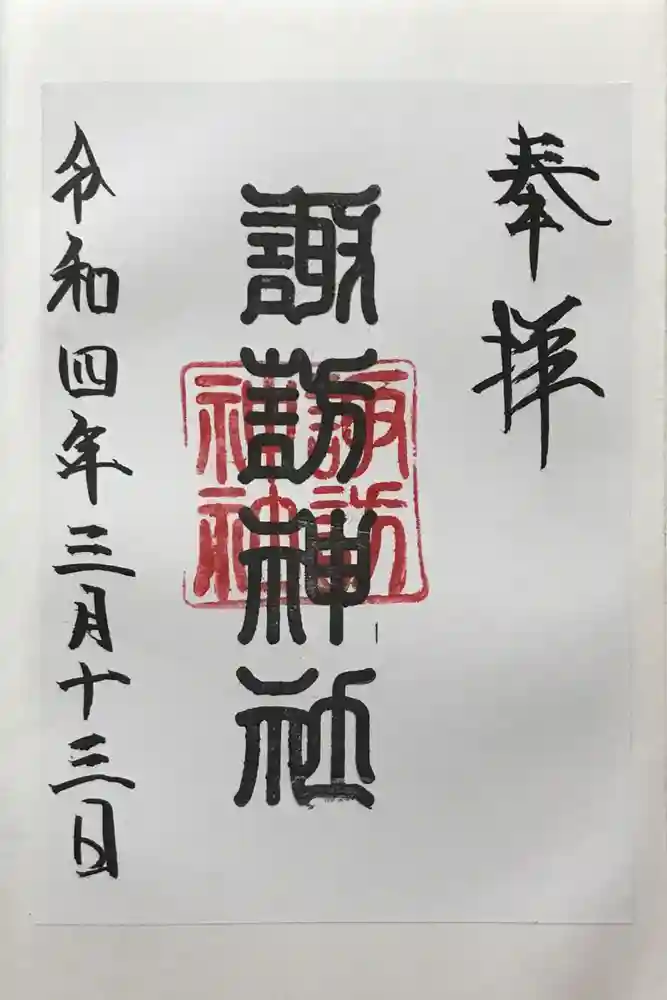 奉拝
諏訪神社
諏訪
神社
令和四年三月十三日